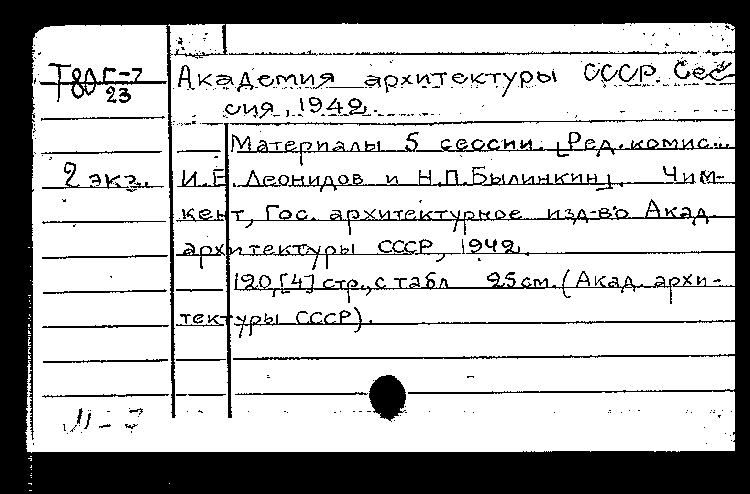 Т80 Г-7
23
Академия архитектуры СССР. Сес-
сия, 1942.
Материалы 5 сессии. [Ред. комис...
2 экз.
И.Е. Леонидов и Н.П. Былинкин]. Чим-
кент, Гос. архитектурное изд-во Акад.
архитектуры СССР, 1942.
120,[4] стр., с табл 25 см. (Акад. архи-
тектуры СССР).